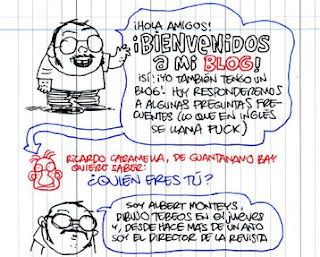 ¡HOLA AMIGOS!
¡BIENVENIDOS
A MI BLOG!
¡SÍ! ¡YO TAMBIÉN TENGO UN
BLOG! HOY RESPONDEREMOS
A ALGUNAS PREGUNTAS FRE-
CUENTES (LO QUE EN INGLÉS
SE LLAMA FUCK)
RICARDO CARAMELLA, DE GUANTANAMO BAY
QUIERE SABER:
¿QUIÉN ERES TÚ?
SOY ALBERT MONTEYS,
DIBUJO TEBEOS EN EL JUEVES
Y, DESDE HACE MÁS DE UN AÑO
SOY EL DIRECTOR DE LA REVISTA